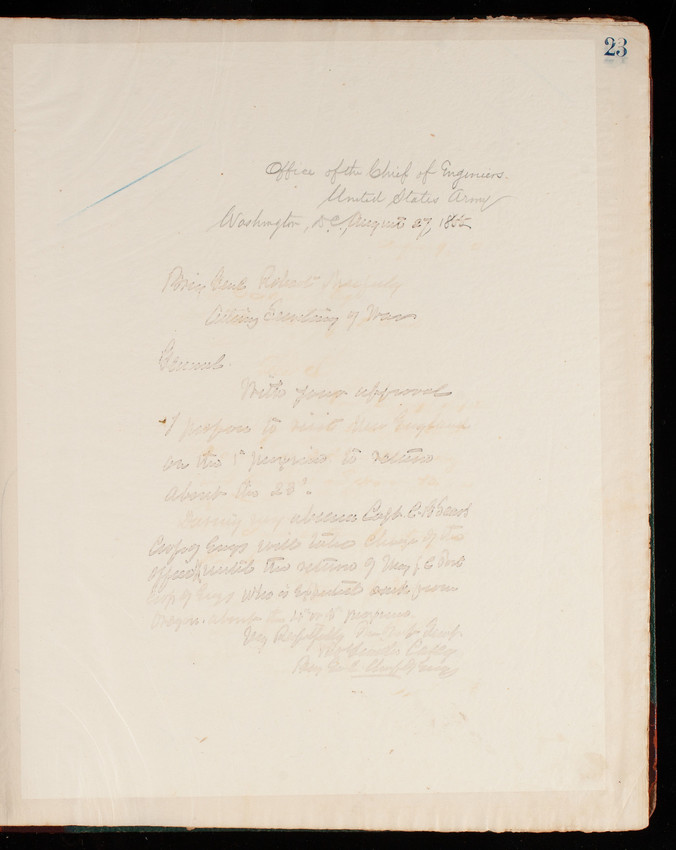 23
Office of the Chief of Engineers.
United States Army
Washington, D.C. August 27, 18
Brig. Genl Robert
Acting Secretary of War
General.
With your approval
I propose to visit New England
on the 1st proximo to return
about the 23d.
During my absence Capt.
Corps of Engs will take charge of the
office until the return of Maj
Corps of Engs who is expected back from
Oregon about the proximo.
Very Respectfully
Thomas Lincoln Casey
Brig Gen Chief of Engs